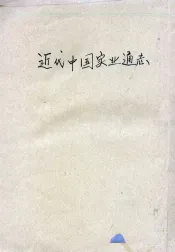 近代中国实业通志